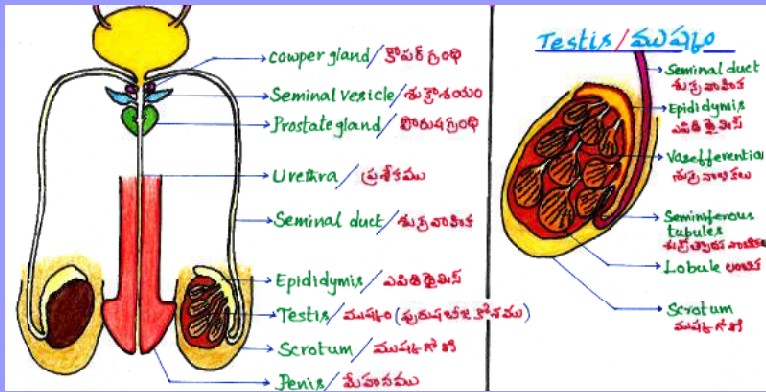 Cowper gland / కౌపర్ గ్రంథి
Seminal vesicle / శుక్రాశయం
Prostate gland / పౌరుషగ్రంథి
Urethra / ప్రసేకము
Seminal duct / శుక్రవాహిక
Epididymis / ఎపిడిడైమిస్
Testis / ముష్కం (పురుషబీజ కోశము)
Scrotum / ముష్కగోణి
Penis / మేహనము
Testis / ముష్కం
Seminal duct
శుక్రవాహిక
Epididymis
ఎపిడిడైమిస్
Vasefferentia
శుక్రనాళికలు
Seminiferous
tubules
Lobule లంబిక
Scrotum
ముష్కగోణి